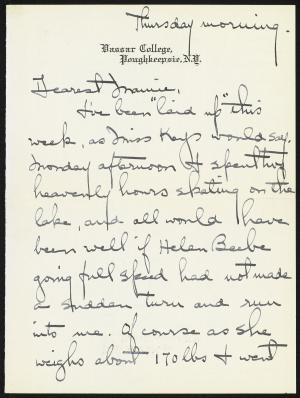 Thursday morning.
Vassar College,
Poughkeepsie, N.Y.
Dearest Mamie,
I've been "laid up" this
week, as Miss Keys would say.
Monday afternoon I spent two
heavenly hours skating on the
lake, and all would have
been well if Helen Beebe
going full speed had not made
a sudden turn and run
into me. Of course as she
weighs about 170 lbs I went